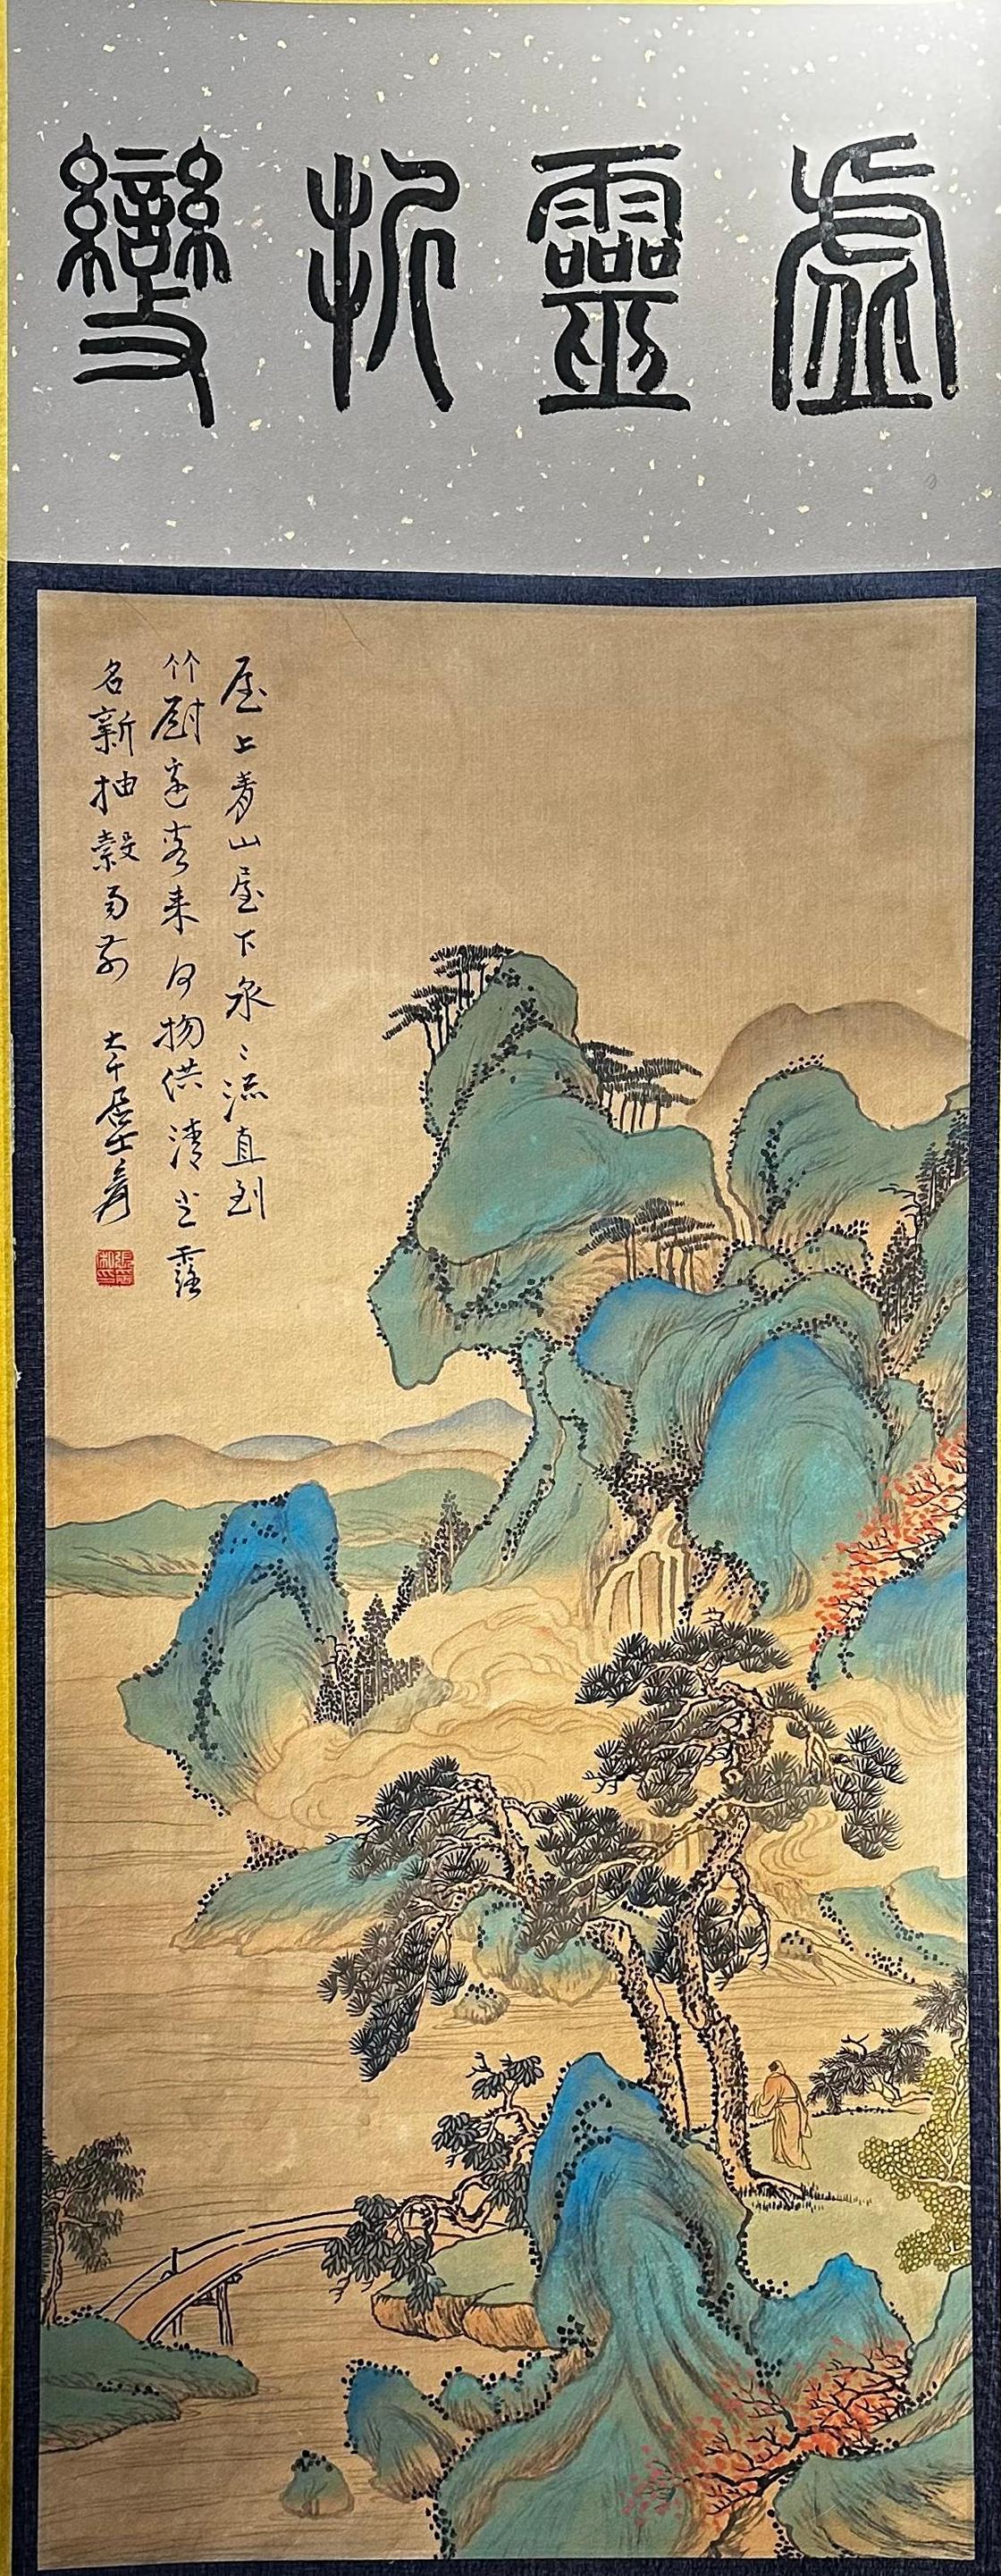 虛靈變
屋上青山屋下泉〻流直到
竹廚邊客來何物供清露
名新抽穀雨前 大千居士爰